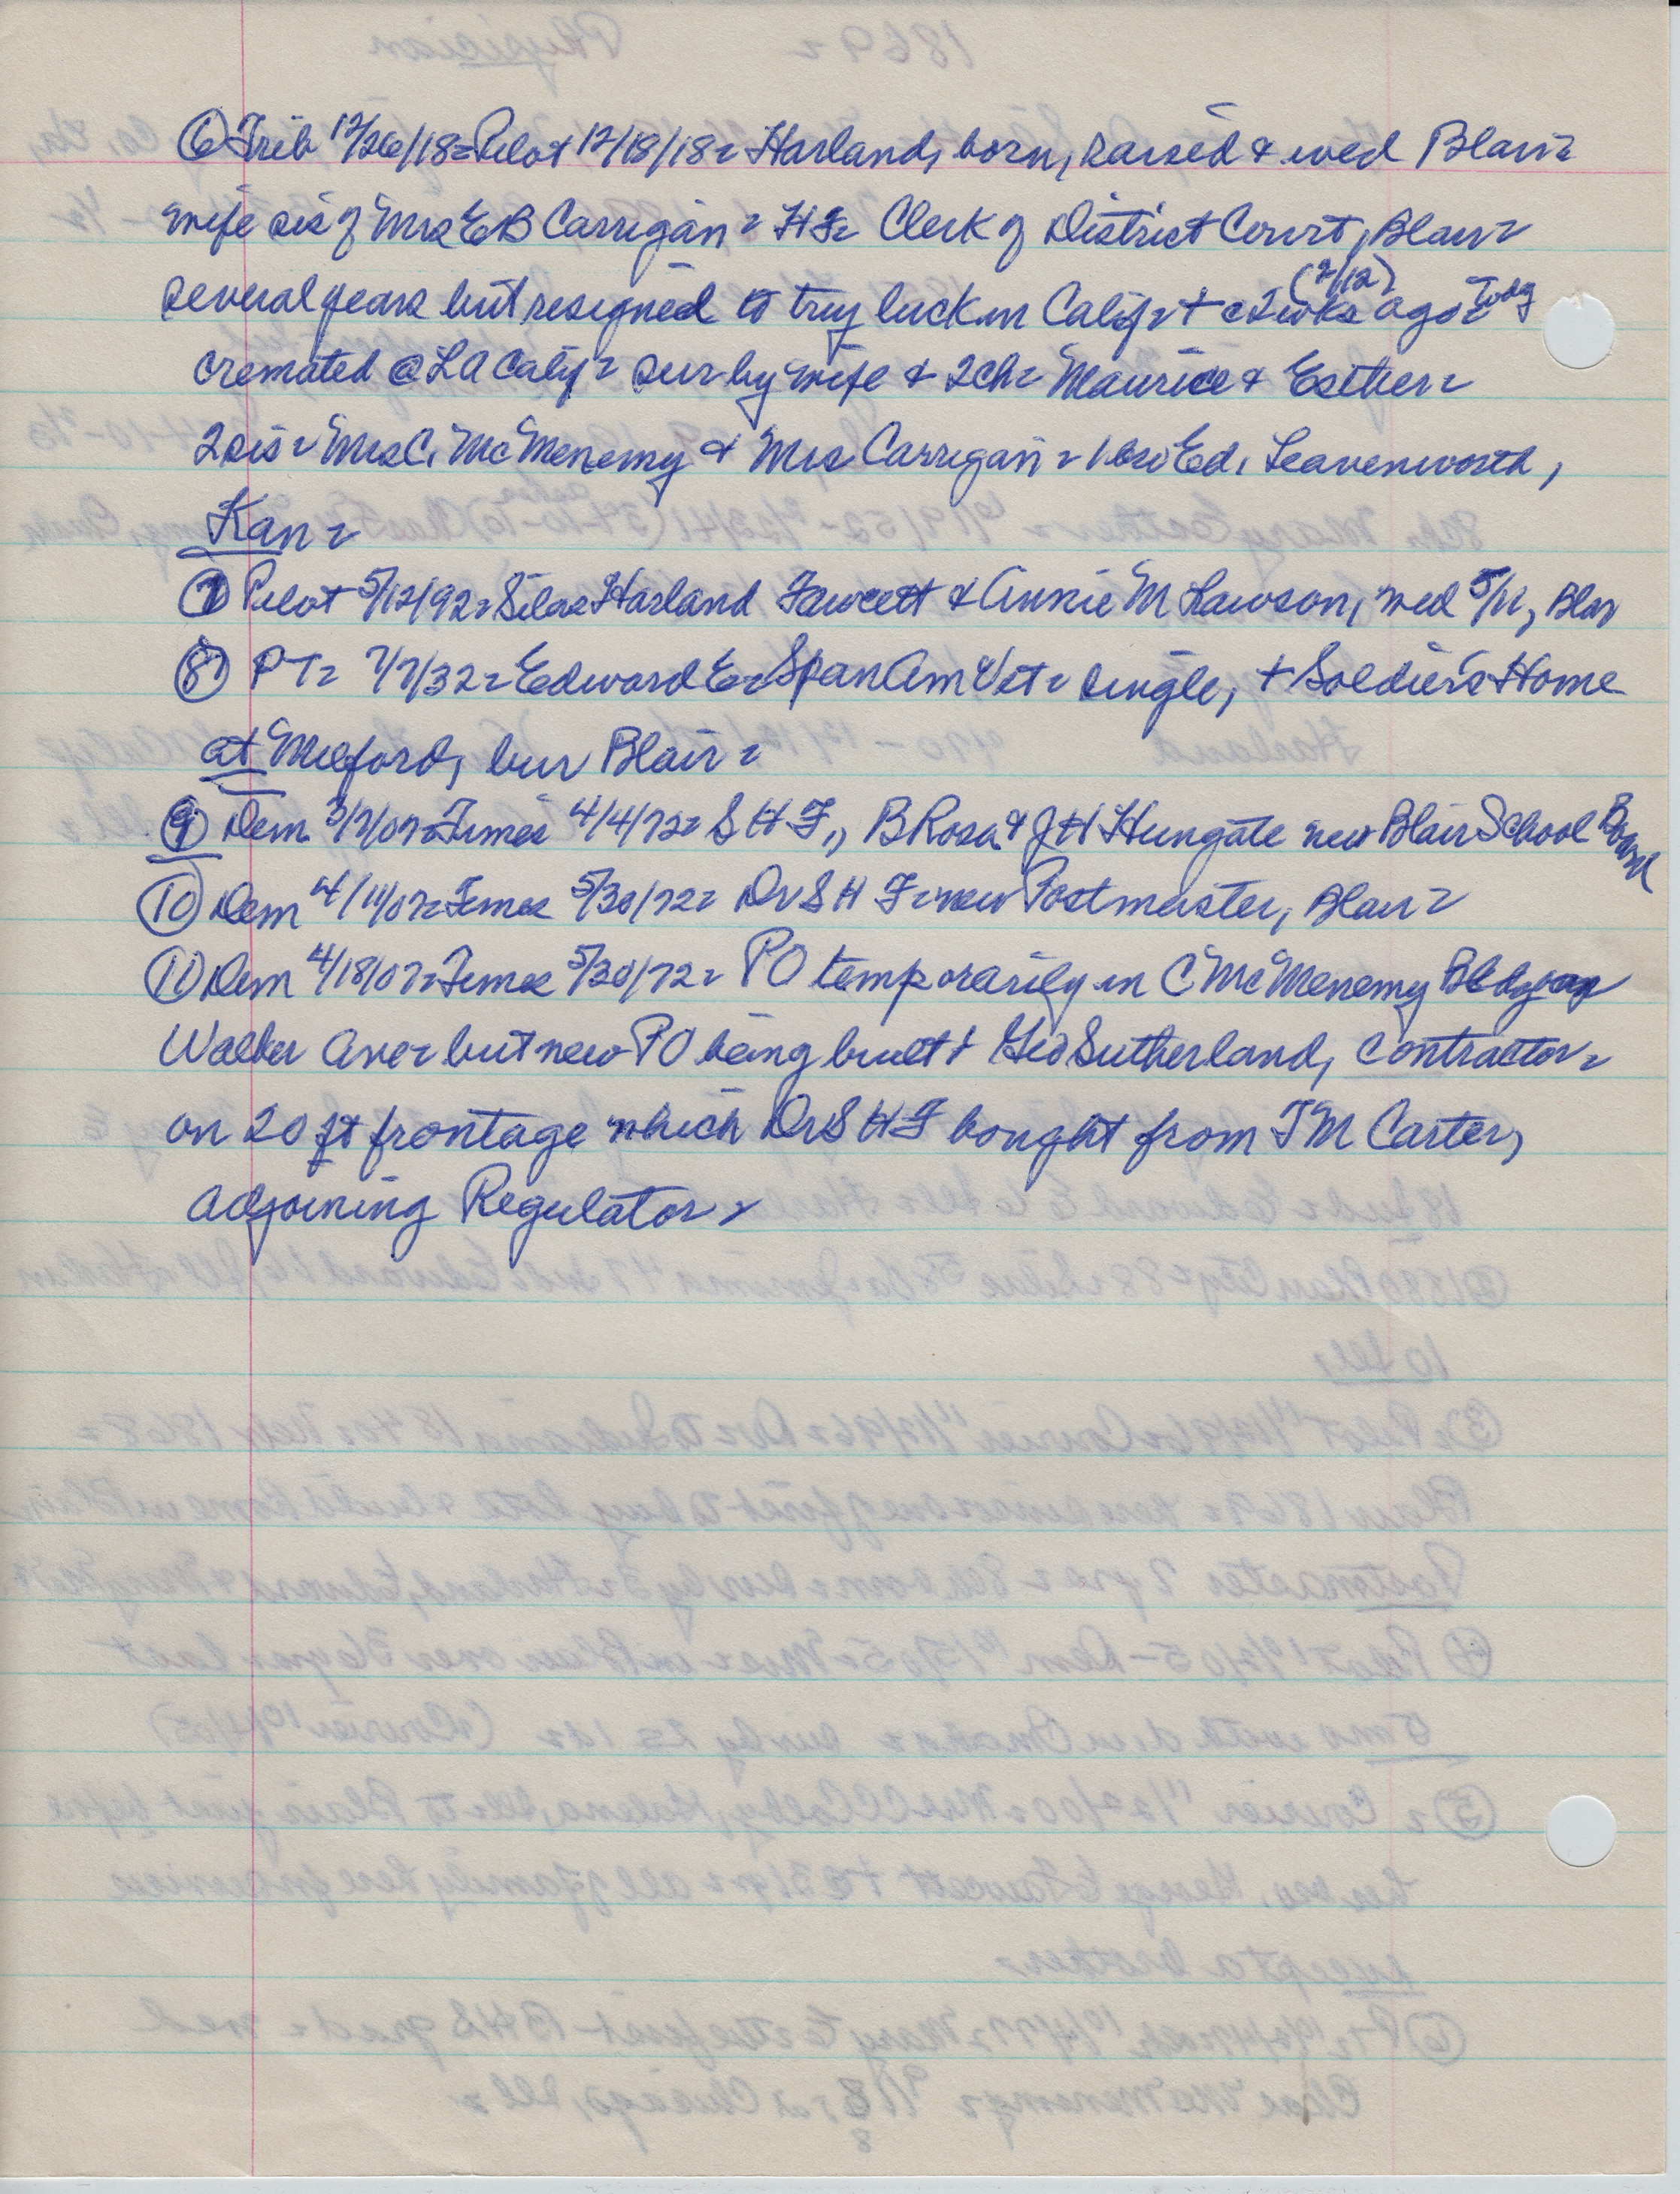 ⑥ Trib 12/26/18 = Pilot 12/18/18 = Harland, born, raised & wed Blair =
wife sis of Mrs EB Carrigan = HF = Clerk of District Court, Blair =
several years but resigned to try luck in Calif = + c 2 wks ago = (12/12)
cremated @ LA Calif = sur by wife & 2 ch = Maurice & Esther =
2 sis = Mrs C. McMenemy & Mrs Carrigan = 1 bro Ed, Leavenworth,
Kan =
⑦ Pilot 5/12/92 = Silas Harland Fawcett & Annie M Lawson, wed 5/11, Blair
⑧ PT = 7/7/32 = Edward E = Span Am Vet = single, + Soldier's Home
at Milford, bur Blair =
⑨ Dem 3/7/07 = Times 4/4/72 = S H F,, B Rosa & J H Hungate new Blair School Board
⑩ Dem 4/11/07 = Times 5/30/72 = Dr S H F = new Postmaster, Blair =
⑪ Dem 4/18/07 = Times 5/30/72 = PO temporarily in C McMenemy Bldg on
Walker Ave = but new PO being built + Geo Sutherland, contractor =
on 20 ft frontage which Dr S H F bought from T M Carter,
adjoining Regulator =